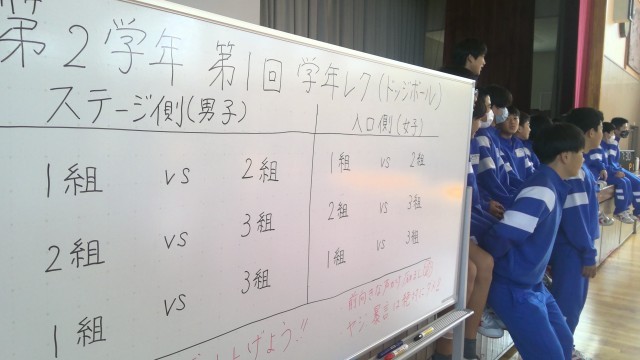 第2学年 第1回 学年レク(ドッジボール)
ステージ側(男子)
1組 vs 2組
2組 vs 3組
1組 vs 3組
入口側(女子)
1組 vs 2組
2組 vs 3組
1組 vs 3組
前向きな声かけ
ヤジ 暴言は絶
上げよう!!